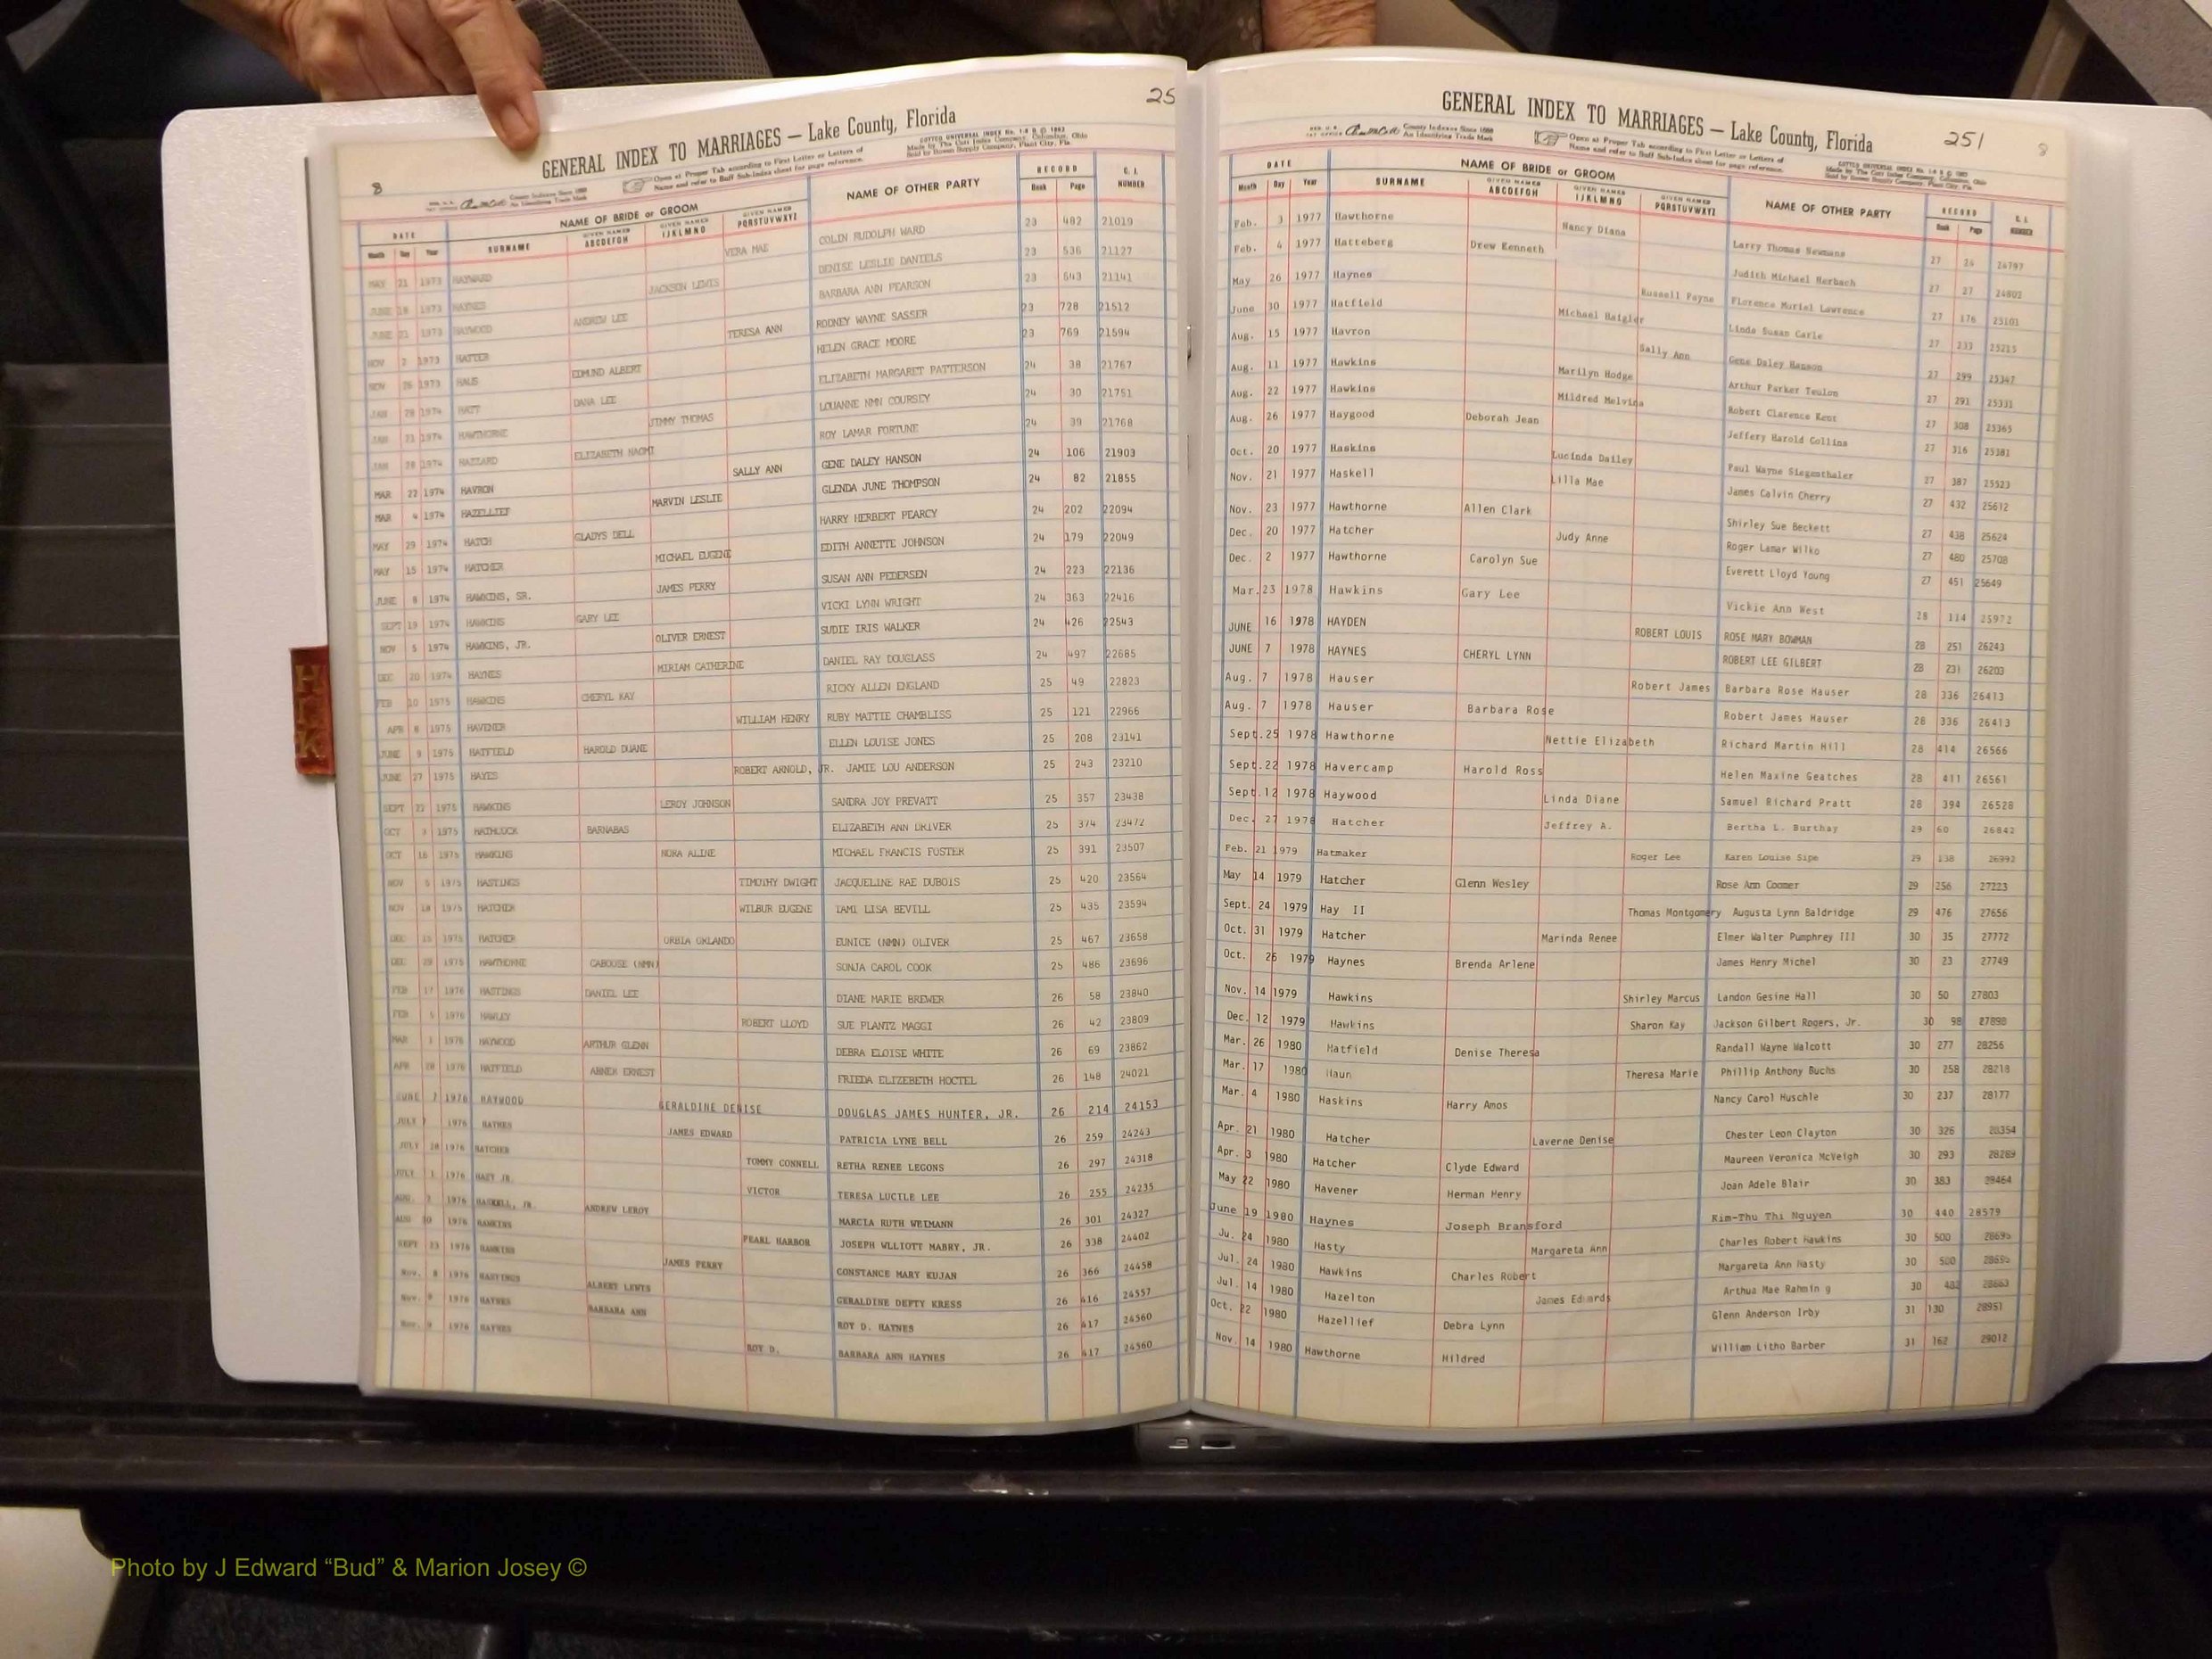 25
GENERAL INDEX TO MARRIAGES — Lake County, Florida
8
County Indexes Since 1888
An Identifying Trade Mark
Open at Proper Tab according to First Letter or Letters of
Name and refer to Buff Sub-Index sheet for page reference.
COTT UNIVERSAL INDEX
Made by The Cott Index Company, Columbus, Ohio
Sold by Rowen Supply Company, Plant City, Fla.
DATE NAME OF BRIDE or GROOM NAME OF OTHER PARTY RECORD C. I. NUMBER
Month Day Year SURNAME GIVEN NAMES ABCDEFGH GIVEN NAMES IJKLMNO GIVEN NAMES PQRSTUVWXYZ Book Page
MAY 21 1973 HAYWARD VERA MAE COLIN RUDOLPH WARD 23 482 21019
JUNE 18 1973 HAYNES JACKSON LEWIS DENISE LESLIE DANIELS 23 536 21127
JUNE 21 1973 HAYWOOD ANDREW LEE BARBARA ANN PEARSON 23 543 21141
NOV 2 1973 HATTER TERESA ANN RODNEY WAYNE SASSER 23 728 21512
NOV 26 1973 HAUS EDMUND ALBERT HELEN GRACE MOORE 23 769 21594
JAN 28 1974 HATT DANA LEE ELIZABETH MARGARET PATTERSON 24 38 21767
JAN 21 1974 HAWTHORNE JIMMY THOMAS LOUANNE NMN COURSEY 24 30 21751
JAN 28 1974 HAZZARD ELIZABETH NAOMI ROY LAMAR FORTUNE 24 39 21768
MAR 22 1974 HAVRON SALLY ANN GENE DALEY HANSON 24 106 21903
MAR 4 1974 HAZELLIEF MARVIN LESLIE GLENDA JUNE THOMPSON 24 82 21855
MAY 29 1974 HATCH GLADYS DELL HARRY HERBERT PEARCY 24 202 22094
MAY 15 1974 HATCHER MICHAEL EUGENE EDITH ANNETTE JOHNSON 24 179 22049
JUNE 8 1974 HAWKINS, SR. JAMES PERRY SUSAN ANN PEDERSEN 24 223 22136
SEPT 19 1974 HAWKINS GARY LEE VICKI LYNN WRIGHT 24 363 22416
NOV 5 1974 HAWKINS, JR. OLIVER ERNEST SUDIE IRIS WALKER 24 426 22543
DEC 20 1974 HAYNES MIRIAM CATHERINE DANIEL RAY DOUGLASS 24 497 22685
FEB 10 1975 HAWKINS CHERYL KAY RICKY ALLEN ENGLAND 25 49 22823
APR 8 1975 HAVENER WILLIAM HENRY RUBY MATTIE CHAMBLISS 25 121 22966
JUNE 9 1975 HATFIELD HAROLD DUANE ELLEN LOUISE JONES 25 208 23141
JUNE 27 1975 HAYES ROBERT ARNOLD, JR. JAMIE LOU ANDERSON 25 243 23210
SEPT 22 1975 HAWKINS LEROY JOHNSON SANDRA JOY PREVATT 25 357 23438
OCT 3 1975 HATHCOCK BARNABAS ELIZABETH ANN DRIVER 25 374 23472
OCT 16 1975 HAWKINS NORA ALINE MICHAEL FRANCIS FOSTER 25 391 23507
NOV 5 1975 HASTINGS TIMOTHY DWIGHT JACQUELINE RAE DUBOIS 25 420 23564
NOV 18 1975 HATCHER WILBUR EUGENE TAMI LISA BEVILL 25 435 23594
DEC 15 1975 HATCHER ORBIA ORLANDO EUNICE (NMN) OLIVER 25 467 23658
DEC 29 1975 HAWTHORNE CABOOSE (NMN) SONJA CAROL COOK 25 486 23696
FEB 17 1976 HASTINGS DANIEL LEE DIANE MARIE BREWER 26 58 23840
FEB 5 1976 HAWLEY ROBERT LLOYD SUE PLANTZ MAGGI 26 42 23809
MAR 1 1976 HAYWOOD ARTHUR GLENN DEBRA ELOISE WHITE 26 69 23862
APR 28 1976 HATFIELD ABNER ERNEST FRIEDA ELIZEBETH HOCTEL 26 148 24021
JUNE 7 1976 HAYWOOD GERALDINE DENISE DOUGLAS JAMES HUNTER, JR. 26 214 24153
JULY 1976 HAYNES JAMES EDWARD PATRICIA LYNE BELL 26 259 24243
JULY 28 1976 HATCHER TOMMY CONNELL RETHA RENEE LEGONS 26 297 24318
JULY 1 1976 HAST JR. VICTOR TERESA LUCTLE LEE 26 255 24235
AUG. 1976 HASKELL, JR. ANDREW LEROY MARCIA RUTH WEIMANN 26 301 24327
AUG 30 1976 HAWKINS PEARL HARBOR JOSEPH WLLIOTT MABRY, JR. 26 338 24402
SEPT 23 1976 HAWKINS JAMES PERRY CONSTANCE MARY KUJAN 26 366 24458
Nov. 8 1976 HASTINGS ALBERT LEWIS GERALDINE DEFTY KRESS 26 416 24557
Nov. 9 1976 HAYNES BARBARA ANN ROY D. HAYNES 26 417 24560
Nov. 9 1976 HAYNES ROY D. BARBARA ANN HAYNES 26 417 24560
H
I
K
GENERAL INDEX TO MARRIAGES — Lake County, Florida
251
8
County Indexes Since 1888
An Identifying Trade Mark
Open at Proper Tab according to First Letter or Letters of
Name and refer to Buff Sub-Index sheet for page reference.
DATE NAME OF BRIDE or GROOM NAME OF OTHER PARTY RECORD C. I. NUMBER
Month Day Year SURNAME GIVEN NAMES ABCDEFGH GIVEN NAMES IJKLMNO GIVEN NAMES PQRSTUVWXYZ Book Page
Feb. 3 1977 Hawthorne Nancy Diana Larry Thomas Newmans 27 24 24797
Feb. 4 1977 Hatteberg Drew Kenneth Judith Michael Herbach 27 27 24803
May 26 1977 Haynes Russell Payne Florence Muriel Lawrence 27 176 25101
June 30 1977 Hatfield Michael Haigler Linda Susan Carle 27 233 25215
Aug. 15 1977 Havron Sally Ann Gene Daley Hanson 27 299 25347
Aug. 11 1977 Hawkins Marilyn Hodge Arthur Parker Teulon 27 291 25331
Aug. 22 1977 Hawkins Mildred Melvina Robert Clarence Kent 27 308 25365
Aug. 26 1977 Haygood Deborah Jean Jeffery Harold Collins 27 316 25381
Oct. 20 1977 Haskins Lucinda Dailey Paul Wayne Siegenthaler 27 387 25523
Nov. 21 1977 Haskell Lilla Mae James Calvin Cherry 27 432 25612
Nov. 23 1977 Hawthorne Allen Clark Shirley Sue Beckett 27 438 25624
Dec. 20 1977 Hatcher Judy Anne Roger Lamar Wilko 27 480 25708
Dec. 2 1977 Hawthorne Carolyn Sue Everett Lloyd Young 27 451 25649
Mar. 23 1978 Hawkins Gary Lee Vickie Ann West 28 114 25972
JUNE 16 1978 HAYDEN ROBERT LOUIS ROSE MARY BOWMAN 28 251 26243
JUNE 7 1978 HAYNES CHERYL LYNN ROBERT LEE GILBERT 28 231 26203
Aug. 7 1978 Hauser Robert James Barbara Rose Hauser 28 336 26413
Aug. 7 1978 Hauser Barbara Rose Robert James Hauser 28 336 26413
Sept. 25 1978 Hawthorne Nettie Elizabeth Richard Martin Hill 28 414 26566
Sept. 22 1978 Havercamp Harold Ross Helen Maxine Geatches 28 411 26561
Sept. 12 1978 Haywood Linda Diane Samuel Richard Pratt 28 394 26528
Dec. 27 1978 Hatcher Jeffrey A. Bertha L. Burthay 29 60 26842
Feb. 21 1979 Hatmaker Roger Lee Karen Louise Sipe 29 138 26992
May 14 1979 Hatcher Glenn Wesley Rose Ann Coomer 29 256 27223
Sept. 24 1979 Hay II Thomas Montgomery Augusta Lynn Baldridge 29 476 27656
Oct. 31 1979 Hatcher Marinda Renee Elmer Walter Pumphrey III 30 35 27772
Oct. 26 1979 Haynes Brenda Arlene James Henry Michel 30 23 27749
Nov. 14 1979 Hawkins Shirley Marcus Landon Gesine Hall 30 50 27803
Dec. 12 1979 Hawkins Sharon Kay Jackson Gilbert Rogers, Jr. 30 98 27898
Mar. 26 1980 Hatfield Denise Theresa Randall Wayne Walcott 30 277 28256
Mar. 17 1980 Haun Theresa Marie Phillip Anthony Buchs 30 258 28218
Mar. 4 1980 Haskins Harry Amos Nancy Carol Huschle 30 237 28177
Apr. 21 1980 Hatcher Laverne Denise Chester Leon Clayton 30 326 28354
Apr. 3 1980 Hatcher Clyde Edward Maureen Veronica McVeigh 30 293 28289
May 22 1980 Havener Herman Henry Joan Adele Blair 30 383 28464
June 19 1980 Haynes Joseph Bransford Kim-Thu Thi Nguyen 30 440 28579
Ju. 24 1980 Hasty Margareta Ann Charles Robert Hawkins 30 500
Jul. 24 1980 Hawkins Charles Robert Margareta Ann Hasty 30 500
Jul. 14 1980 Hazelton James Edwards Arthua Mae Rahming 30 482 28663
Oct. 22 1980 Hazellief Debra Lynn Glenn Anderson Irby 31 130 28951
Nov. 14 1980 Hawthorne Hildred William Litho Barber 31 162 29012
Photo by J Edward “Bud” & Marion Josey ©